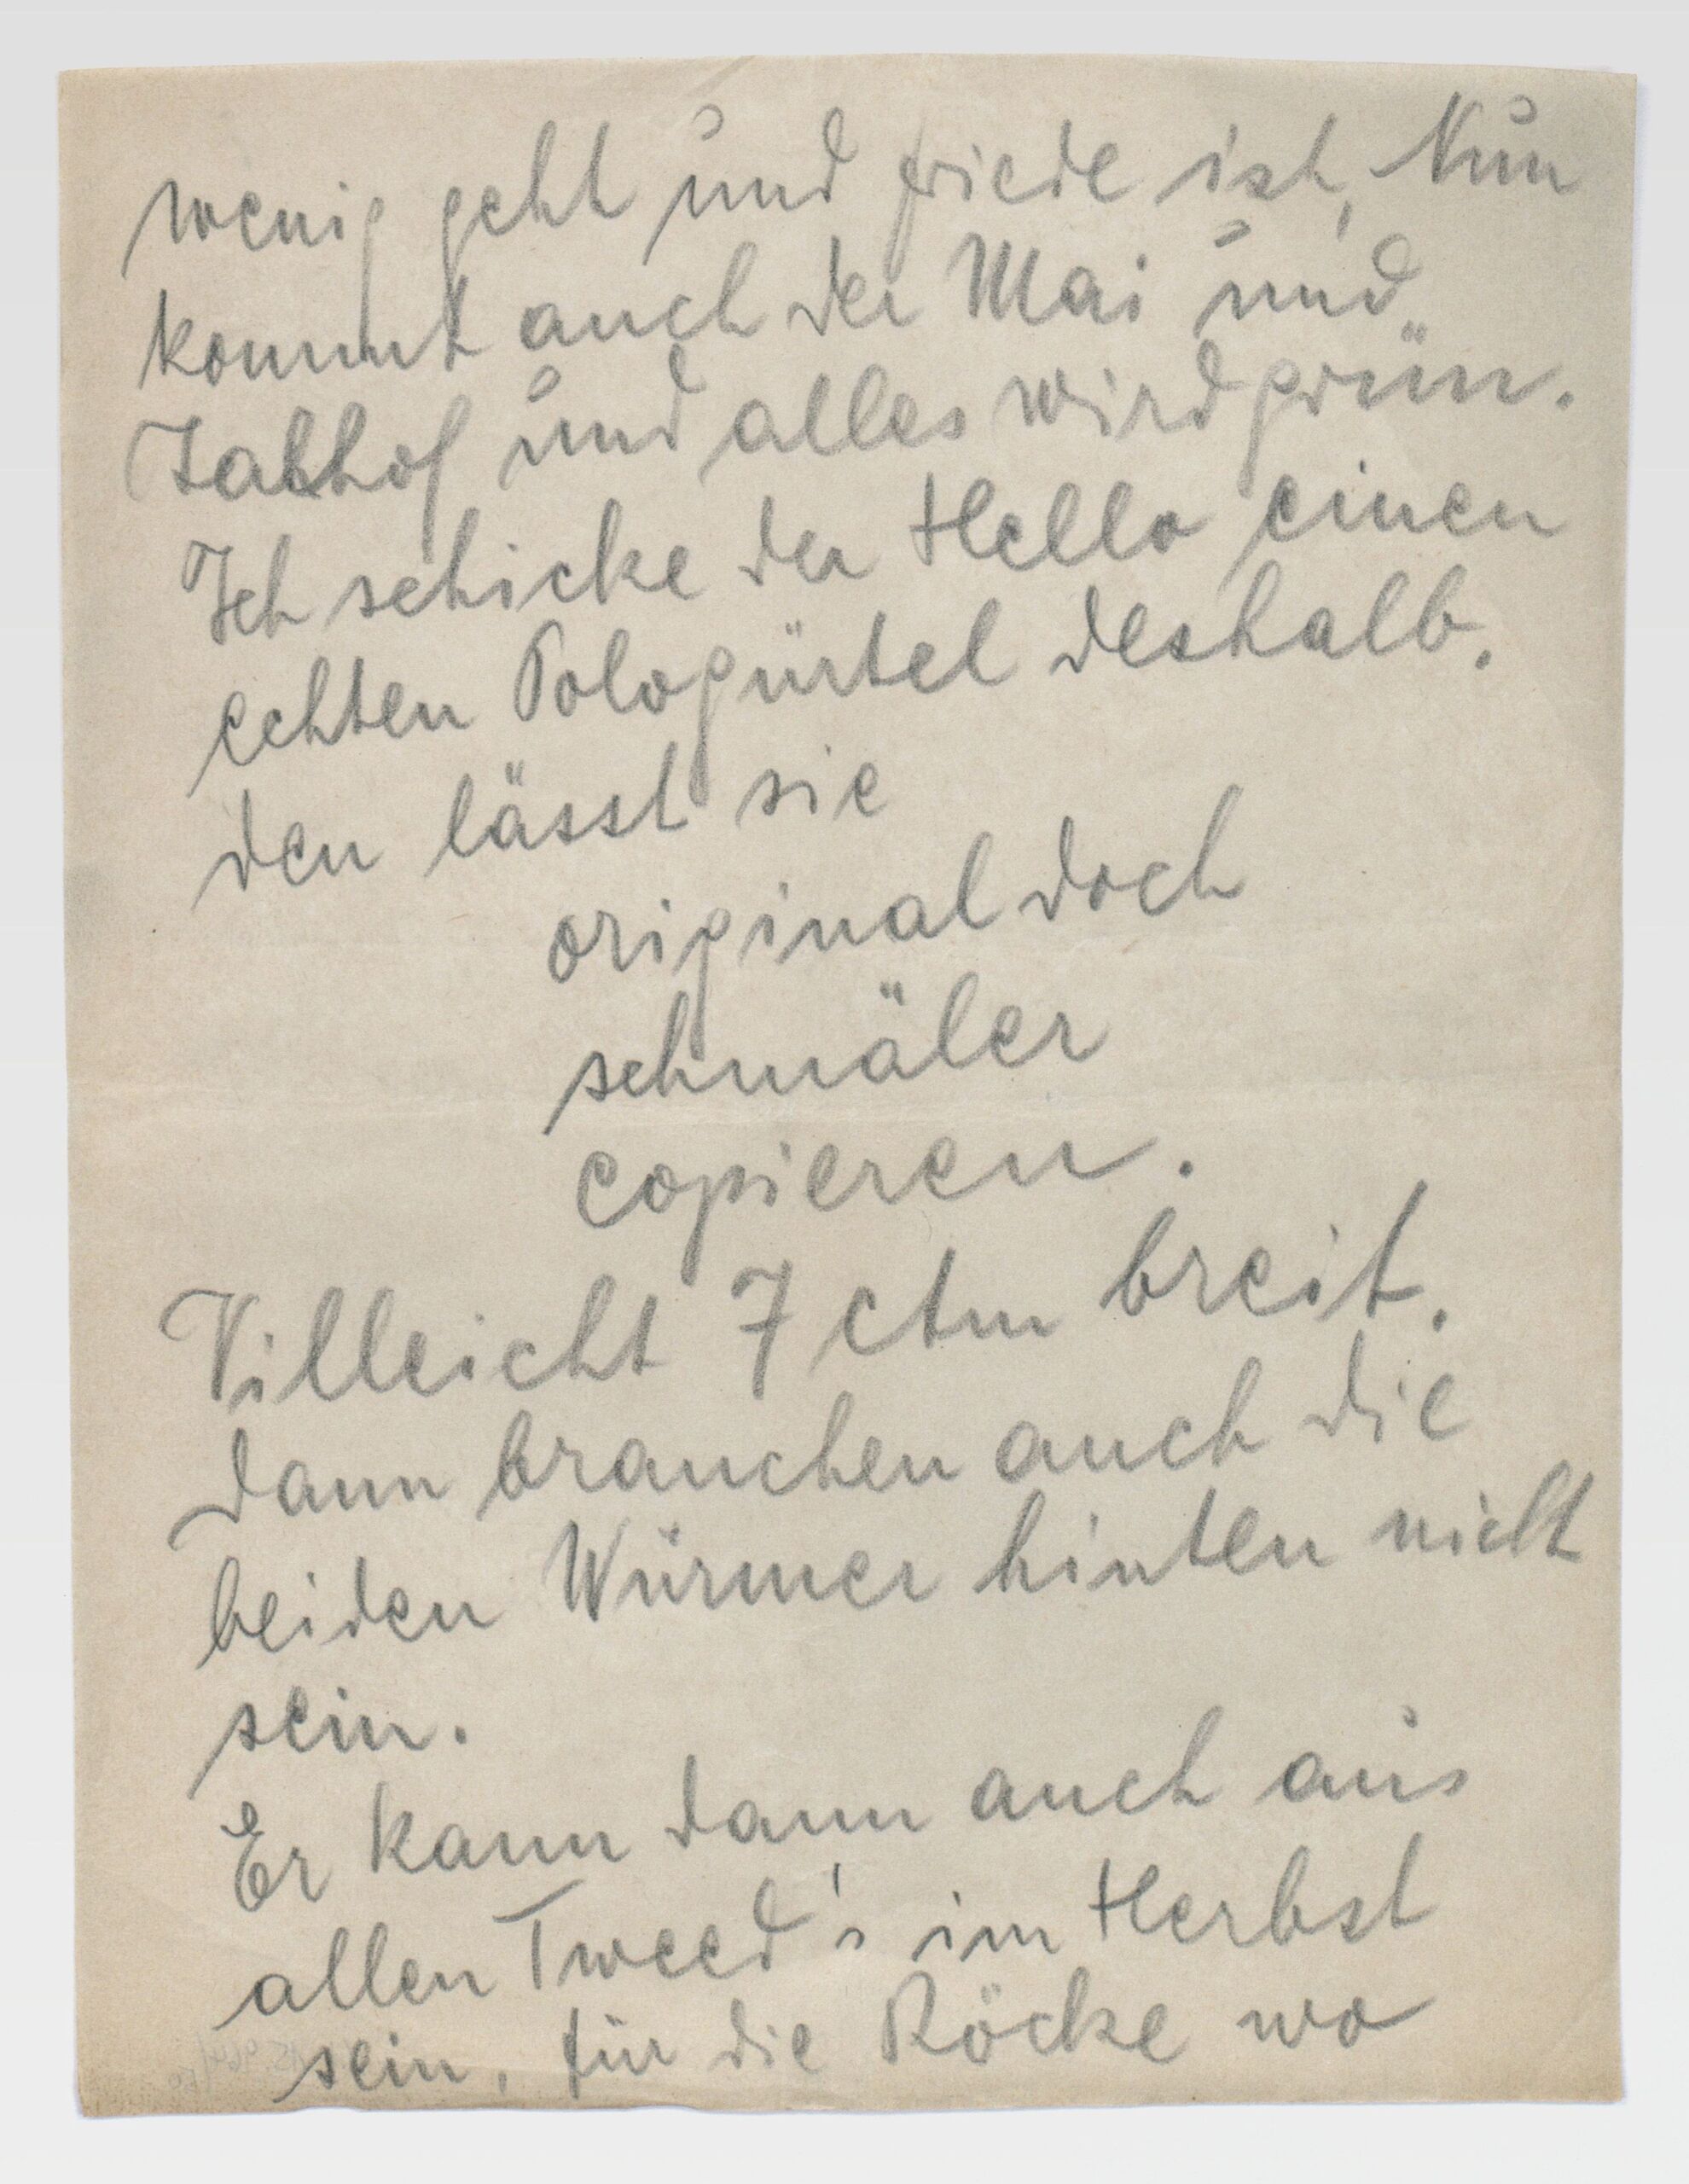 wenig geht und friede ist, Nun
kommt auch der Mai und
Tabhof und alles wird grün.
Ich schicke der Hello einen
echten Pologürtel deshalb.
den lässt sie
original doch
schmäler
copieren.
Villeicht 7 ctm breit.
dann brauchen auch die
beiden Würmer hinten nicht
sein.
Er kann dann auch aus
allen Tweed's im Herbst
sein, für die Röcke wo